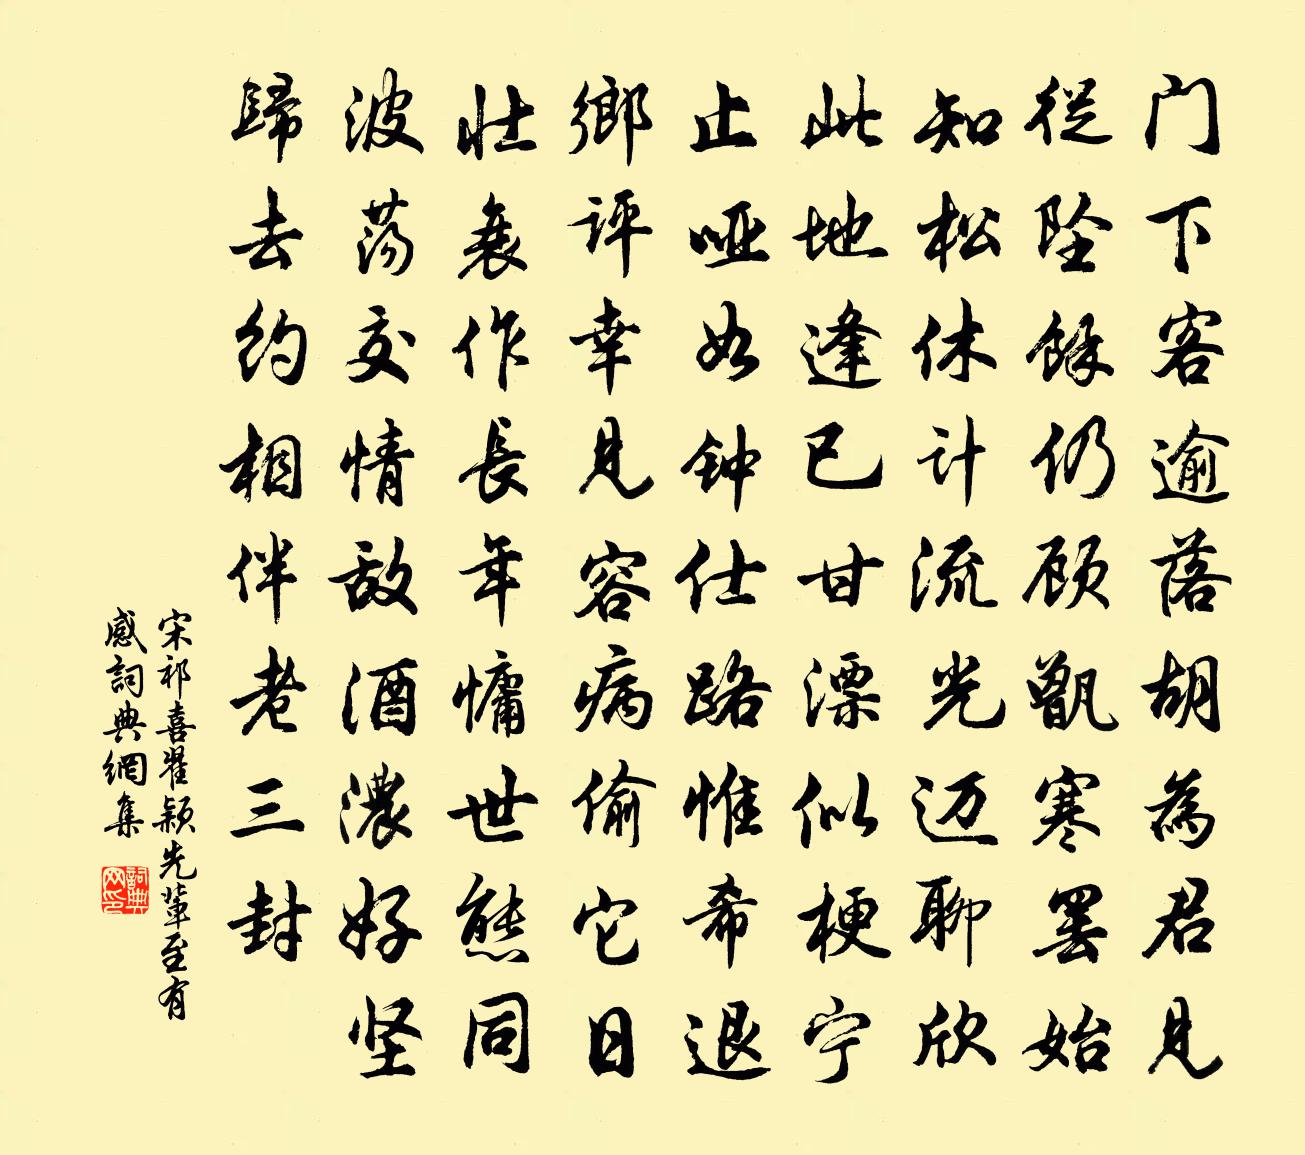 门下客逾落胡為君見
從坠餘仍顾甑寒罢始
知松休计流光迈聊欣
此地逢已甘漂似梗宁
止哑如钟仕路惟希退
鄉评幸見容病偷它日
壮衰作長年慵世態同
波荡交情敌酒濃好坚
歸去约相伴老三封
宋祁喜翟颖先輩至有
感詞典網集
詞典
网印